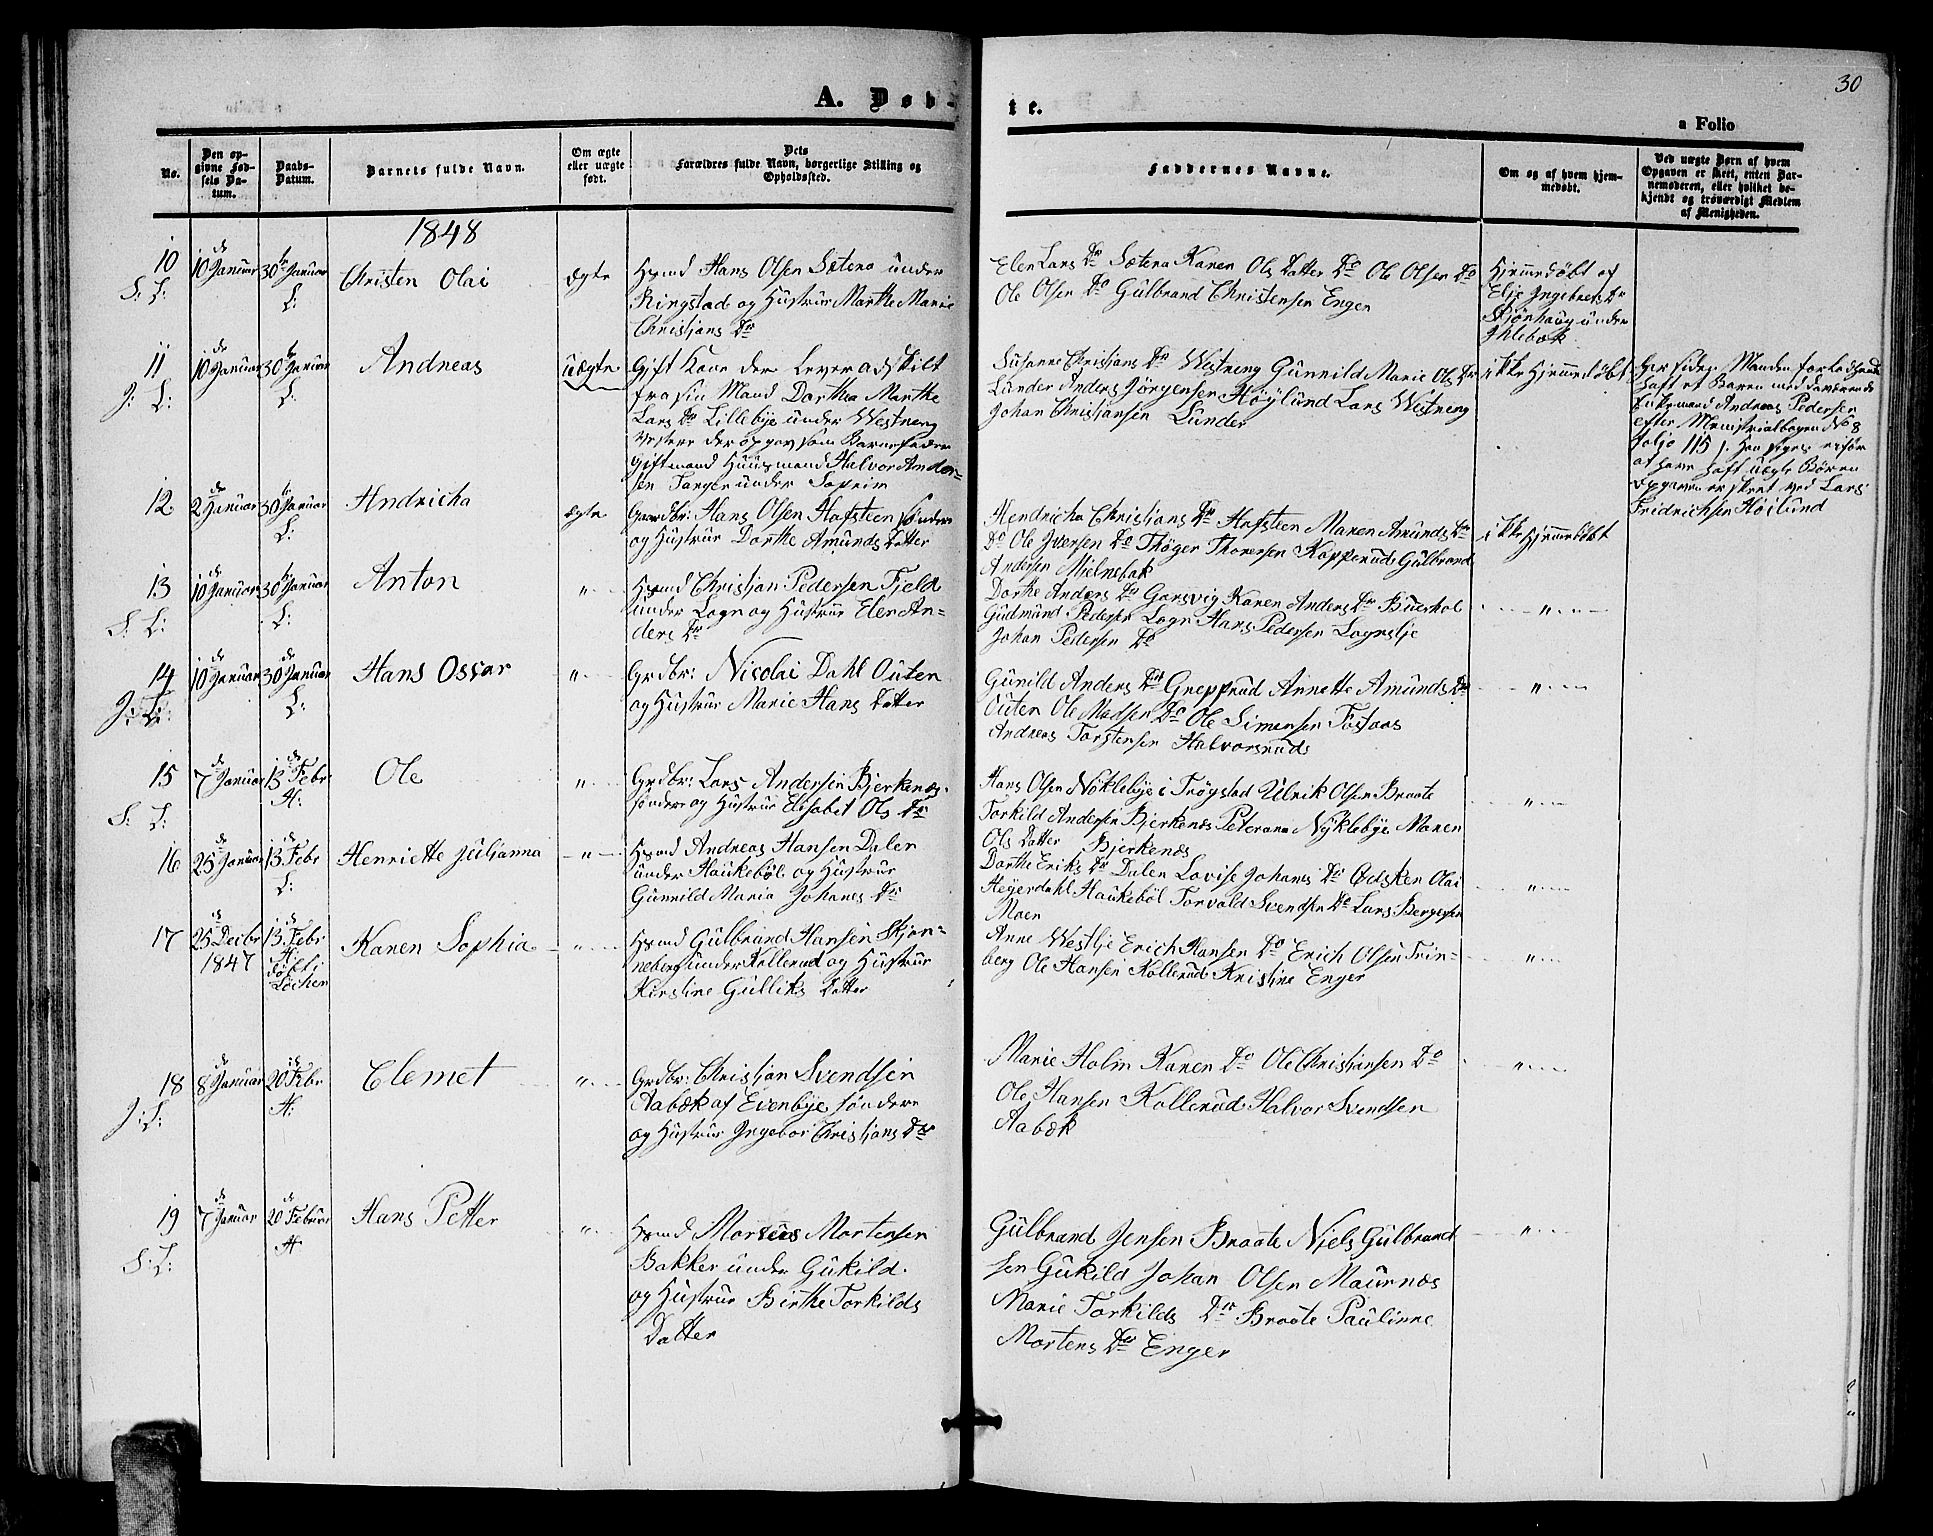 30
A. Døb-
te.
a Folio
No.
Den op-
givne Fød-
sels Da-
tum.
Daabs-
Datum.
Barnets fulde Navn.
Om ægte
eller uægte
født.
Dets
Forældres fulde Navn, borgerlige Stilling og
Opholdssted.
Faddernes Navne.
Om og af hvem hjem-
medøbt.
Ved uægte Børn af hvem
Opgaven er skeet, enten Bar-
nemoderen, eller hvilket be-
kjendt og troværdigt Medlem
af Menigheden.
1848
10
S: L:
10 de Januar
30 te Januar
L:
Christen Olai
ægte
Hsmd Hans Olsen Sætera under
Ringstad og Hustrue Marthe Marie
Christjans Dr
Elen Lars Dr Sætera Karen Ols Datter Do Ole Olsen Do
Ole Olsen Do Gulbrand Christensen Enger
Hjemmedøbt af
Elje Ingebrets Dr
Skjønhaug under
Ihlebæk
11
J: L:
10 de Januar
30 te Januar
L:
Andreas
uægte
Gift Kone der lever adskilt
fra sin Mand Dorthea Marthe
Lars Dr Lillebye under Westreng
Vestere der opgav som Barnefader
Giftmand Huusmand Halvor Ander-
sen Tangen under
Susanne Christjans Dr Westreng Gunnild Marie Ols Dr
Lunder Anders Jørgensen Høylund Lars Westreng
Johan Christjansen Lunder
ikke Hjemmedøbt
Her sidez Manden forladt
haft et Barn med daværende
Enkemand Andreas Pedersen
efter Ministrialbogen No 8
folio 115 han siges at
have haft uægte Børn
Opgaven er skeet ved Lars
Fridrichsen Høilund
12
2 de Januar
30 te Januar
L:
Andricha
ægte
Gaardbr: Hans Olsen Hafsteen søndere
og Hustrue Dorthe Amunds Datter
Hendricha Christjans Dr Hafsteen Maren Amunds Dr
Do Ole Iversen Do Thøger Thoresen Kopperud Gulbrand
Andersen Mielnebæk
ikke Hjemmedøbt
13
S: L:
10 de Januar
30 te Januar
L:
Anton
"
Hsmd Christjan Pedersen Fjeld
under Logn og Hustrue Elen An-
ders Dr
Dorthe Anders Dr Gorsvig Karen Anders Dr Buerhol
Gudmund Pedersen Logn Hans Pedersen Lognslje
Johan Pedersen Do
"
14
J: L:
10 de Januar
30 de Januar
L:
Hans Oscar
"
Grdbr: Nicolai Dahl Outen
og Hustrue Marie Hans Datter
Gunild Anders Dr Grepprud Annette Amunds Dr
Outen Ole Madsen Do Ole Simensen Tostaas
Andreas Torstensen Halvorsrud
"
15
S: L:
7 de Januar
13 de Febr
H:
Ole
"
Grdbr: Lars Andersen Bjerkenæs
søndere og Hustrue Elisabet Ols Dr
Hans Olsen Nøklebye i Trøgstad Ulrik Olsen Braate
Torkild Andersen Bjerkenæs Peterane Nyklebye Maren
Ols Datter Bjerkenæs
"
16
25 de Januar
13 de Febr
L:
Henriette Julianna
"
Hsmd Andreas Hansen Dalen
under Haukebøl og Hustrue
Gunnild Maria Johanes Dr
Dorthe Eriks Dr Dalen Lovise Johanes Dr Ødsken Olai
Heyerdahl Haukebøl Torvald Svendsen Do Lars Bergersen
Moen
"
17
25 de Decbr
1847
13 de Febr
H:
døbt i
Løchen
Karen Sophia
"
Hsmd Gulbrand Hansen Skjøn-
neberg under Kollerud og Hustrue
Kirstine Gulliks Datter
Anne Westlje Erich Hansen Do Erich Olsen Trin-
berg Ole Hansen Kollerud Kristine Enger
"
18
J: L:
8 de Januar
20 de Febr
H:
Clemet
"
Grdbr: Christjan Svendsen
Aabæk af Evenbye søndere
og Hustrue Ingebor Christjans Dr
Marie Holm Karen Do Ole Christjansen Do
Ole Hansen Kollerud Halvor Svendsen
Aabæk
"
19
S: L:
7 de Januar
20 de Februar
H
Hans Petter
"
Hsmd Mortens Mortensen
Bakker under Gukild
og Hustrue Birthe Torkilds
Datter
Gulbrand Jensen Braate Niels Gulbrand
sen Gukild Johan Olsen Maurnæs
Marie Torkilds Dr Braate Paulinne
Mortens Dr Enger
"